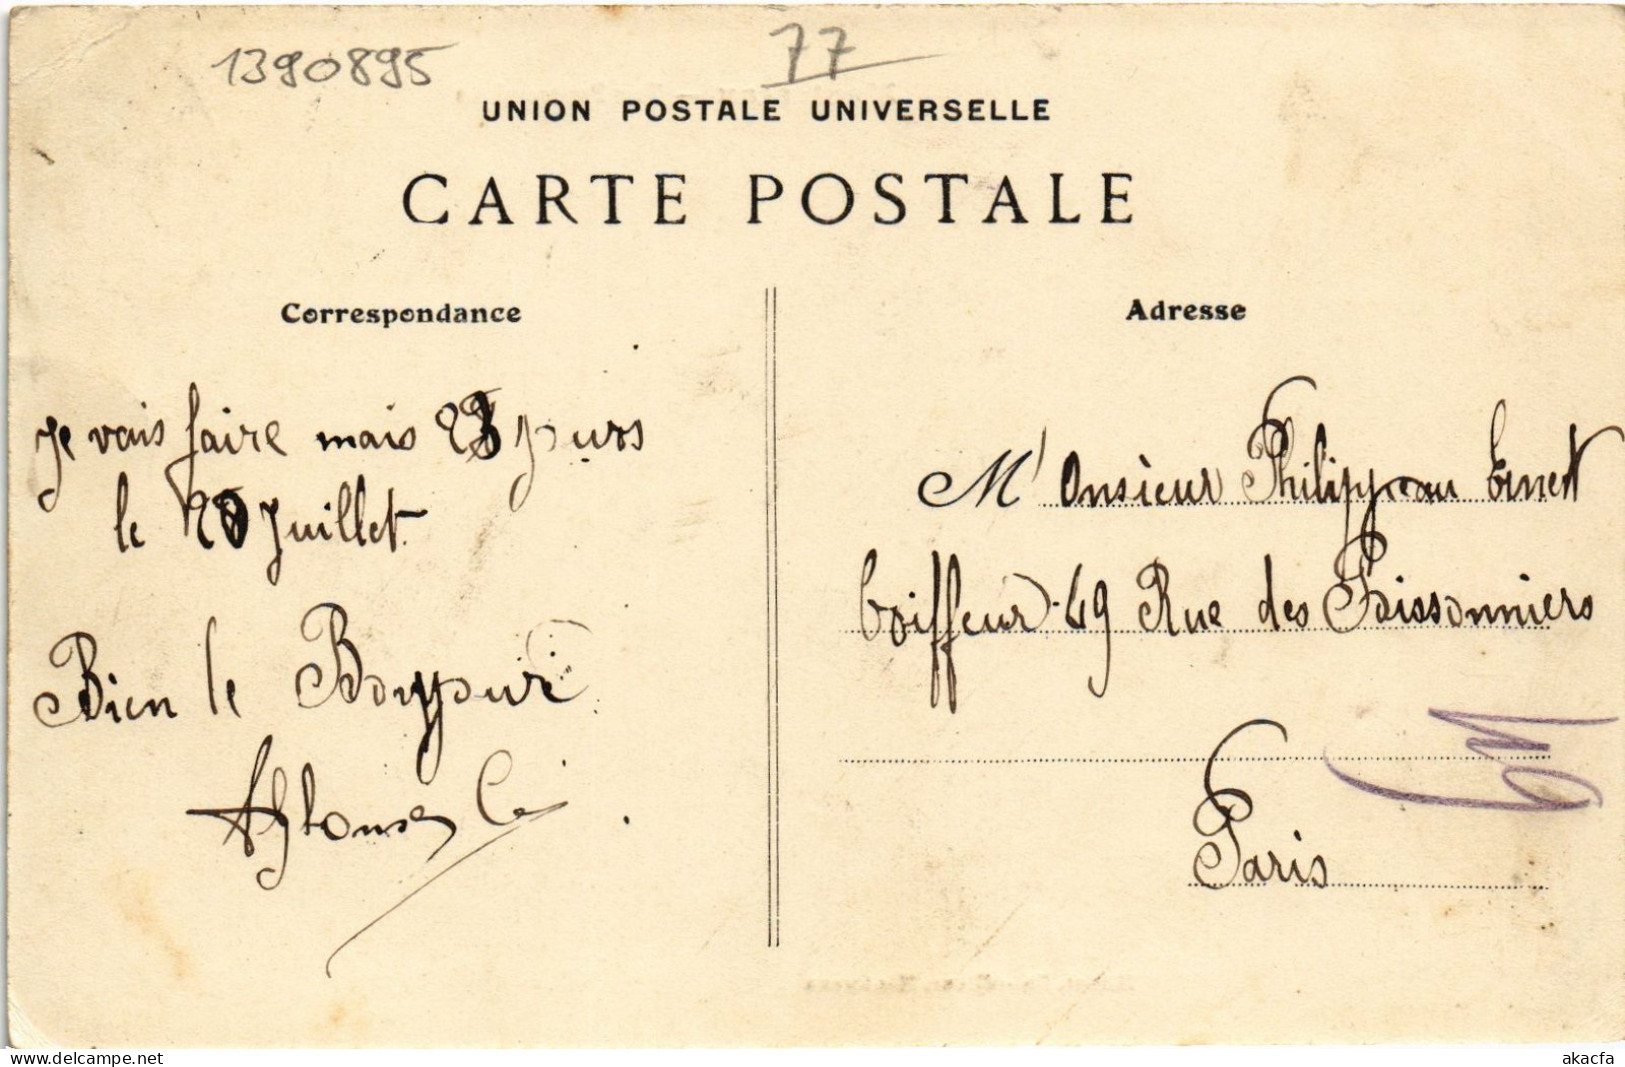 1390895
77
UNION POSTALE UNIVERSELLE
CARTE POSTALE
Correspondance
Adresse
Je vais faire mais 23 jours
le 20 Juillet
Bien le Bonjour
M' Onsieur Philippeau Ernest
Coiffeur 49 Rue des Poissonniers
Paris
www.delcampe.net
akacfa